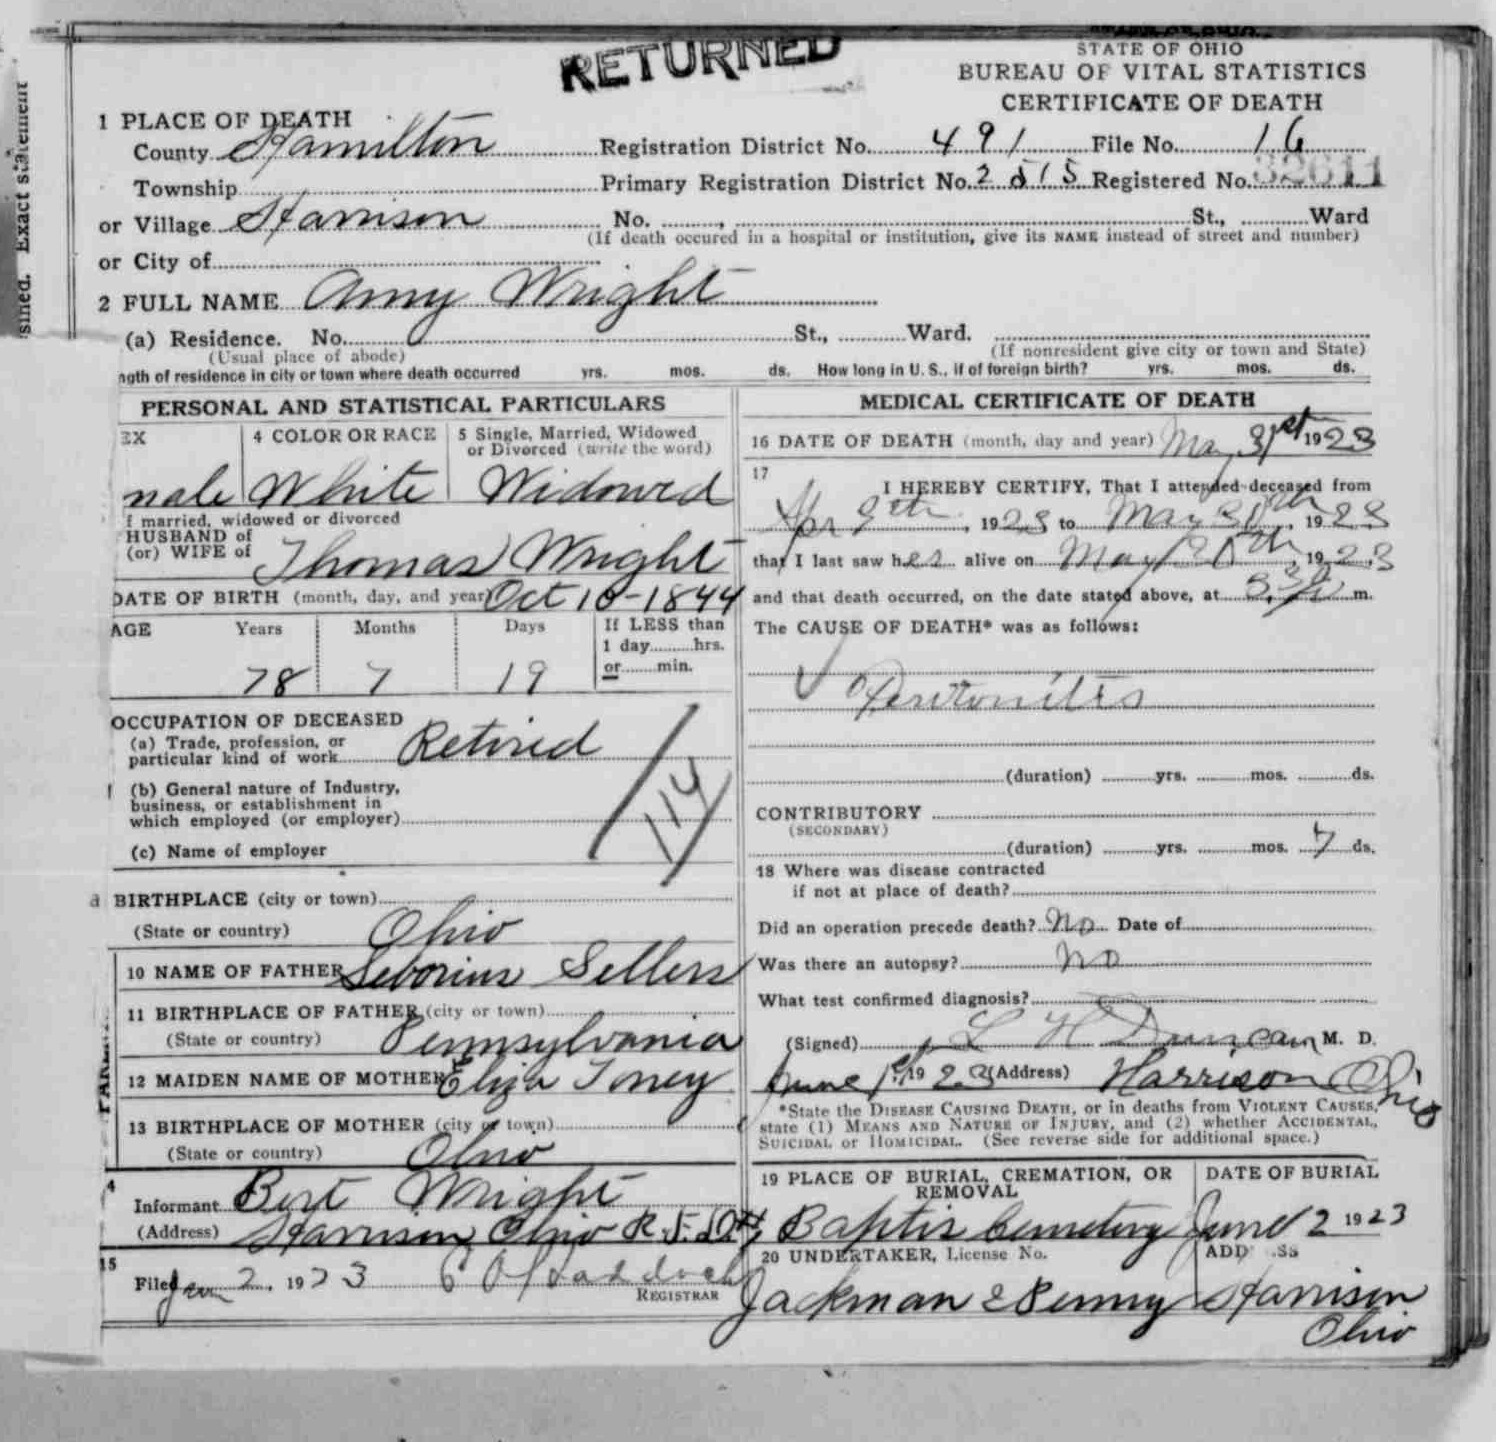 RETURNED
STATE OF OHIO
BUREAU OF VITAL STATISTICS
CERTIFICATE OF DEATH
1 PLACE OF DEATH
County Hamilton Registration District No. 491 File No. 16
Township Primary Registration District No. 2515 Registered No. 32611
or Village Harrison No. St., Ward
(If death occured in a hospital or institution, give its NAME instead of street and number)
or City of
2 FULL NAME Amy Wright
(a) Residence. No. St., Ward.
(Usual place of abode) (If nonresident give city or town and State)
ngth of residence in city or town where death occurred yrs. mos. ds. How long in U. S., if of foreign birth? yrs. mos. ds.
PERSONAL AND STATISTICAL PARTICULARS
EX 4 COLOR OR RACE 5 Single, Married, Widowed
or Divorced (write the word)
male White Widowed
f married, widowed or divorced
HUSBAND of
(or) WIFE of Thomas Wright
DATE OF BIRTH (month, day, and year) Oct 10-1844
AGE Years Months Days If LESS than
1 day hrs.
or min.
78 7 19
OCCUPATION OF DECEASED
(a) Trade, profession, or
particular kind of work Retired
(b) General nature of Industry,
business, or establishment in
which employed (or employer)
(c) Name of employer
114
BIRTHPLACE (city or town)
(State or country) Ohio
10 NAME OF FATHER Seborius Sellers
11 BIRTHPLACE OF FATHER (city or town)
(State or country) Pennsylvania
12 MAIDEN NAME OF MOTHER Eliza Toney
13 BIRTHPLACE OF MOTHER (city or town)
(State or country) Ohio
4
Informant Bert Wright
(Address) Harrison Ohio R.F.D.
15
Filed 2, 1923
REGISTRAR
MEDICAL CERTIFICATE OF DEATH
16 DATE OF DEATH (month, day and year) May 31st 1923
17
I HEREBY CERTIFY, That I attended deceased from
Apr 9th, 1923 to May 30th, 1923
that I last saw her alive on May 30th, 1923
and that death occurred, on the date stated above, at m.
The CAUSE OF DEATH* was as follows:
Peritonitis
(duration) yrs. mos. ds.
CONTRIBUTORY
(SECONDARY)
(duration) yrs. mos. 7 ds.
18 Where was disease contracted
if not at place of death?
Did an operation precede death? No Date of
Was there an autopsy? No
What test confirmed diagnosis?
(Signed) L H Duncan M. D.
June 1st 1923 (Address) Harrison Ohio
*State the DISEASE CAUSING DEATH, or in deaths from VIOLENT CAUSES,
state (1) MEANS AND NATURE OF INJURY, and (2) whether ACCIDENTAL,
SUICIDAL or HOMICIDAL. (See reverse side for additional space.)
19 PLACE OF BURIAL, CREMATION, OR
REMOVAL
DATE OF BURIAL
Baptis Cemetery June 2 1923
20 UNDERTAKER, License No. ADD SS
Jackman & Penny Harrison
Ohio
sined. Exact statement